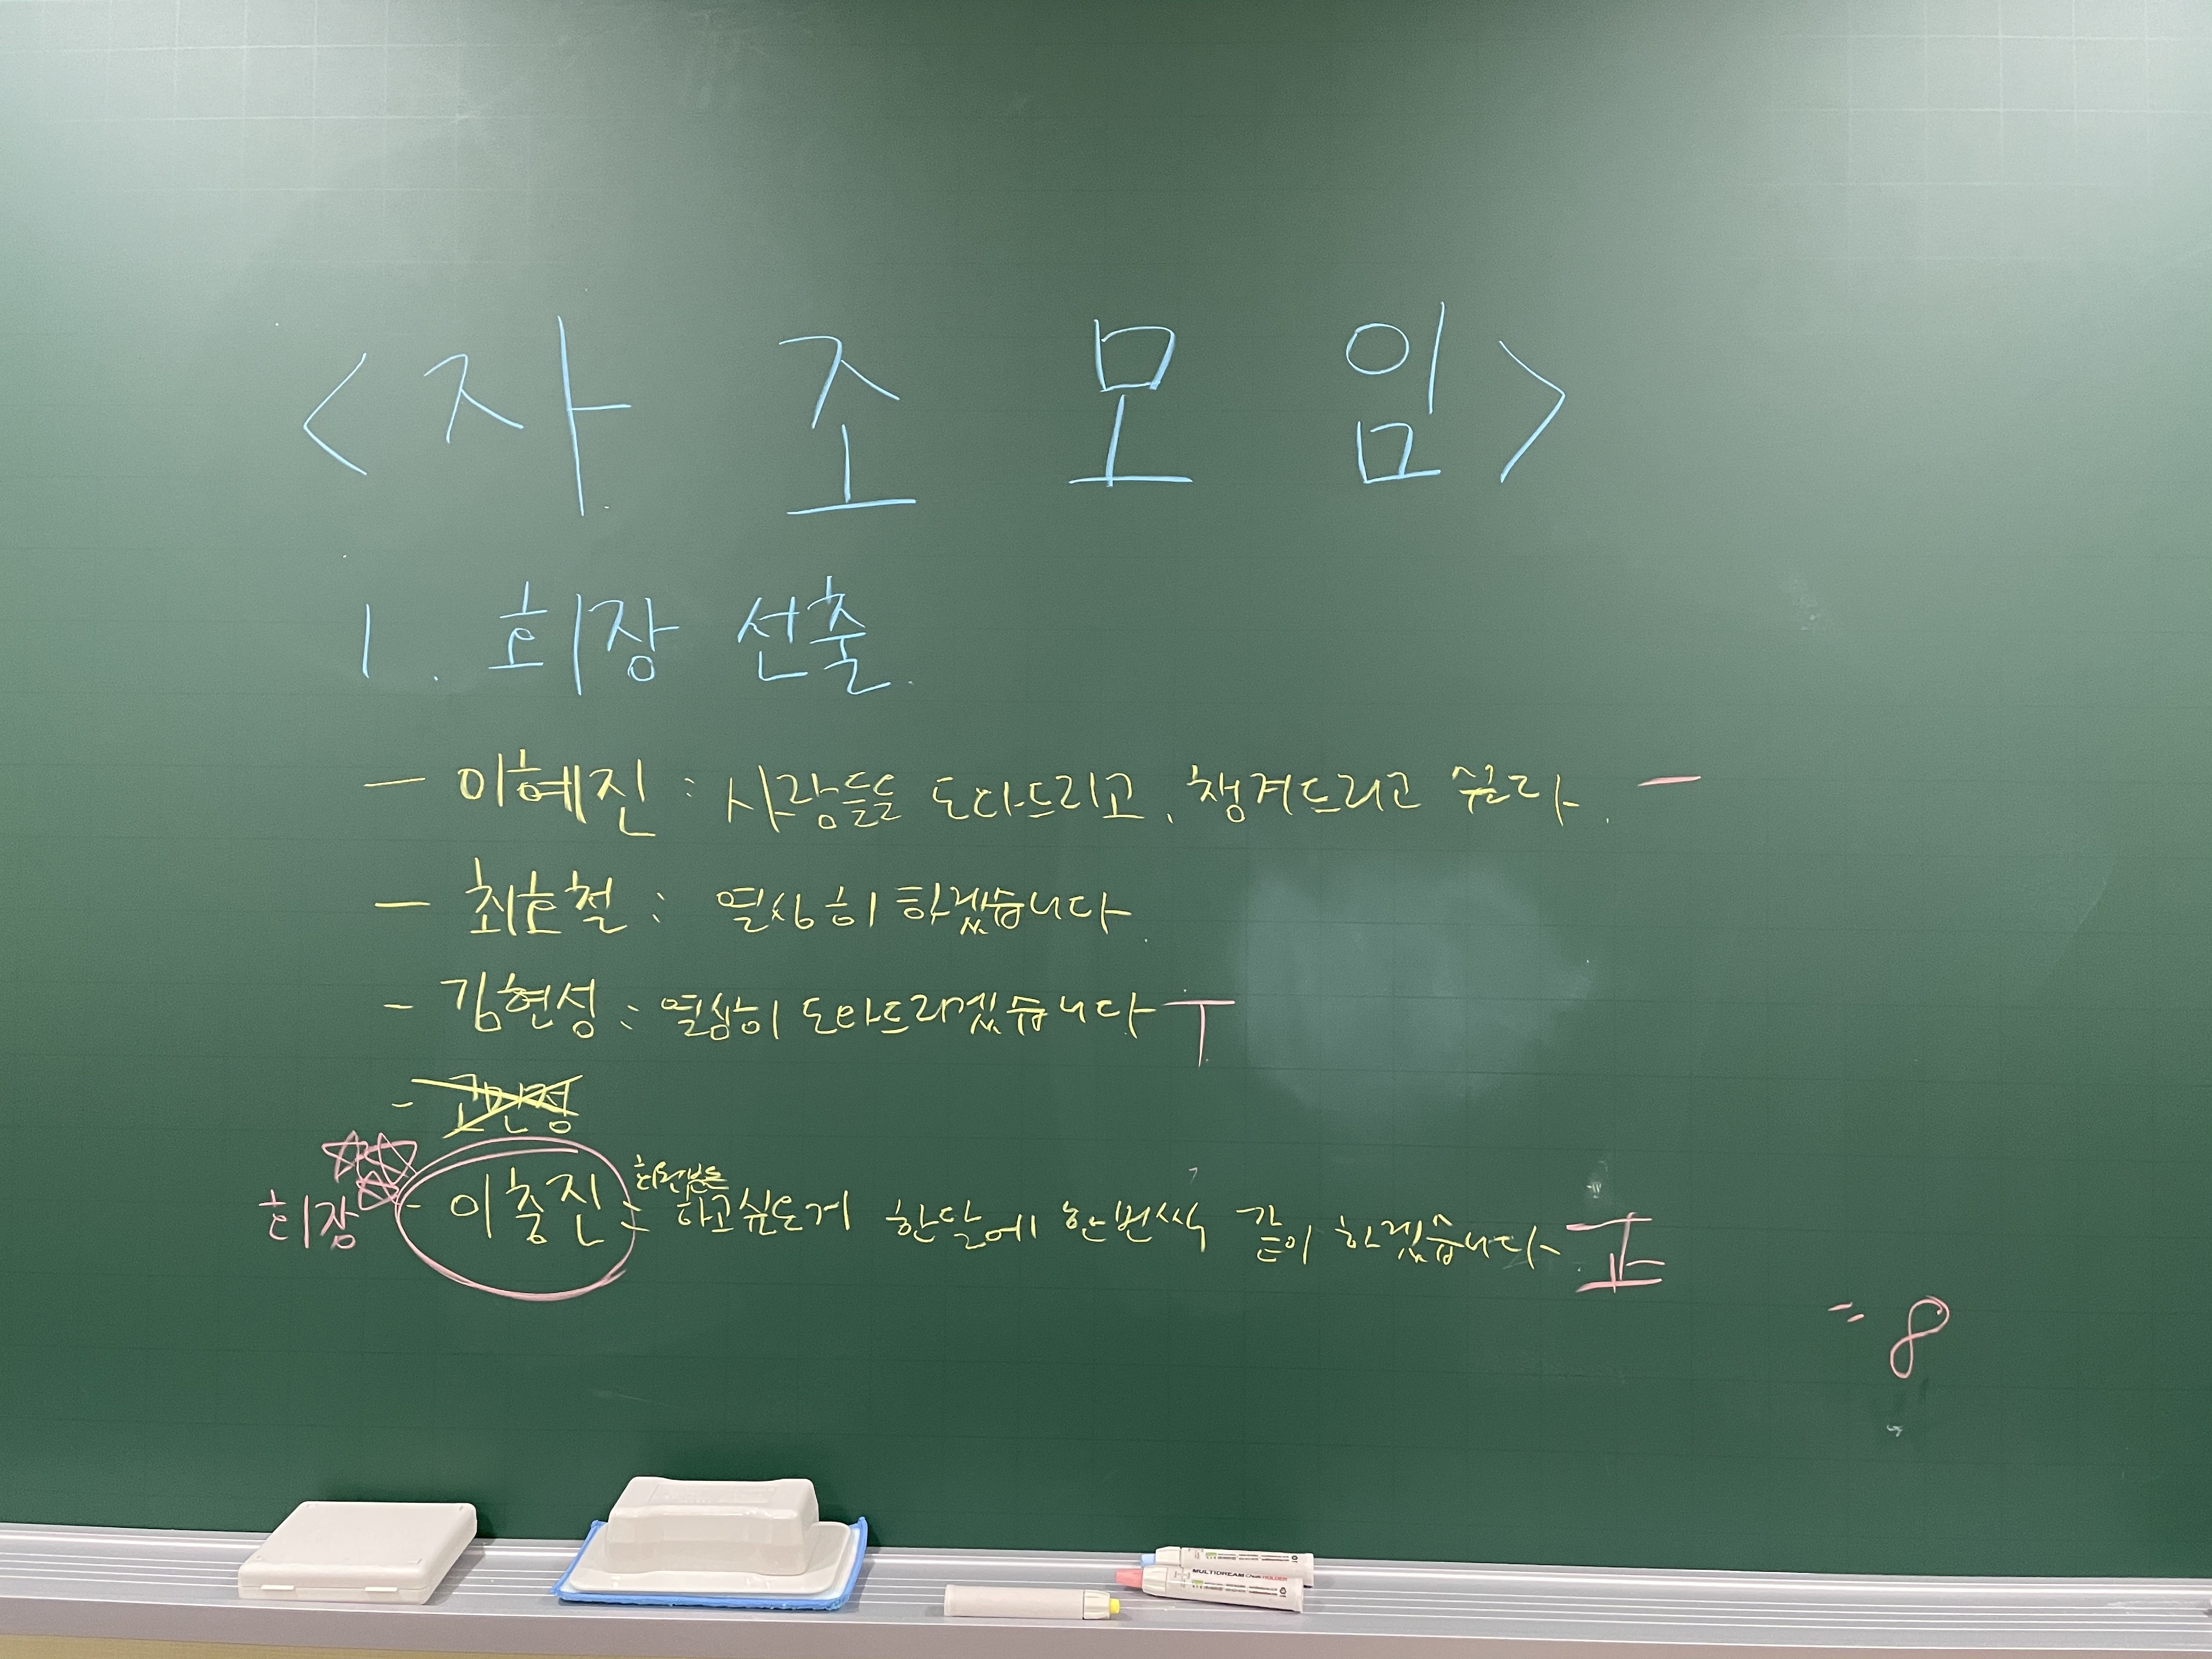 <자조모임>
1. 회장 선출.
- 이혜진 : 사람들을 도와드리고, 챙겨드리고 싶다. 一
- 최호철 : 열심히 하겠습니다.
- 김현성 : 열심히 도와드리겠습니다 T
- 고민정
회장 - 이충진 : 회원분들 하고싶은게 한달에 한번씩 같이 하겠습니다 正
= 8
MULTIDREAM Chalk HOLDER